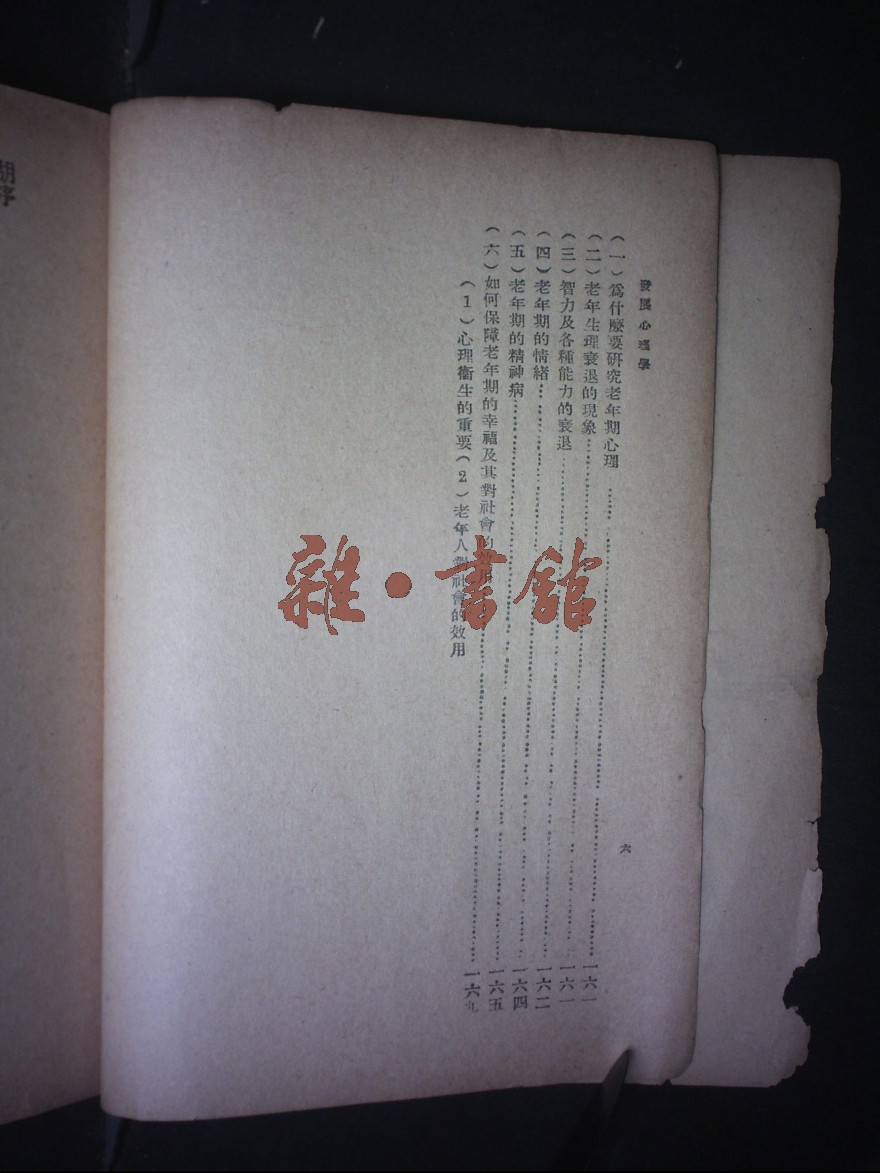 發展心理學
六
(一)爲什麼要研究老年期心理……一六一
(二)老年生理衰退的現象……一六一
(三)智力及各種能力的衰退……一六二
(四)老年期的情緒……一六四
(五)老年期的精神病……一六五
(六)如何保障老年期的幸福及其對社會的……一六九
(1)心理衞生的重要(2)老年人對社會的效用
胡序
雜·書館